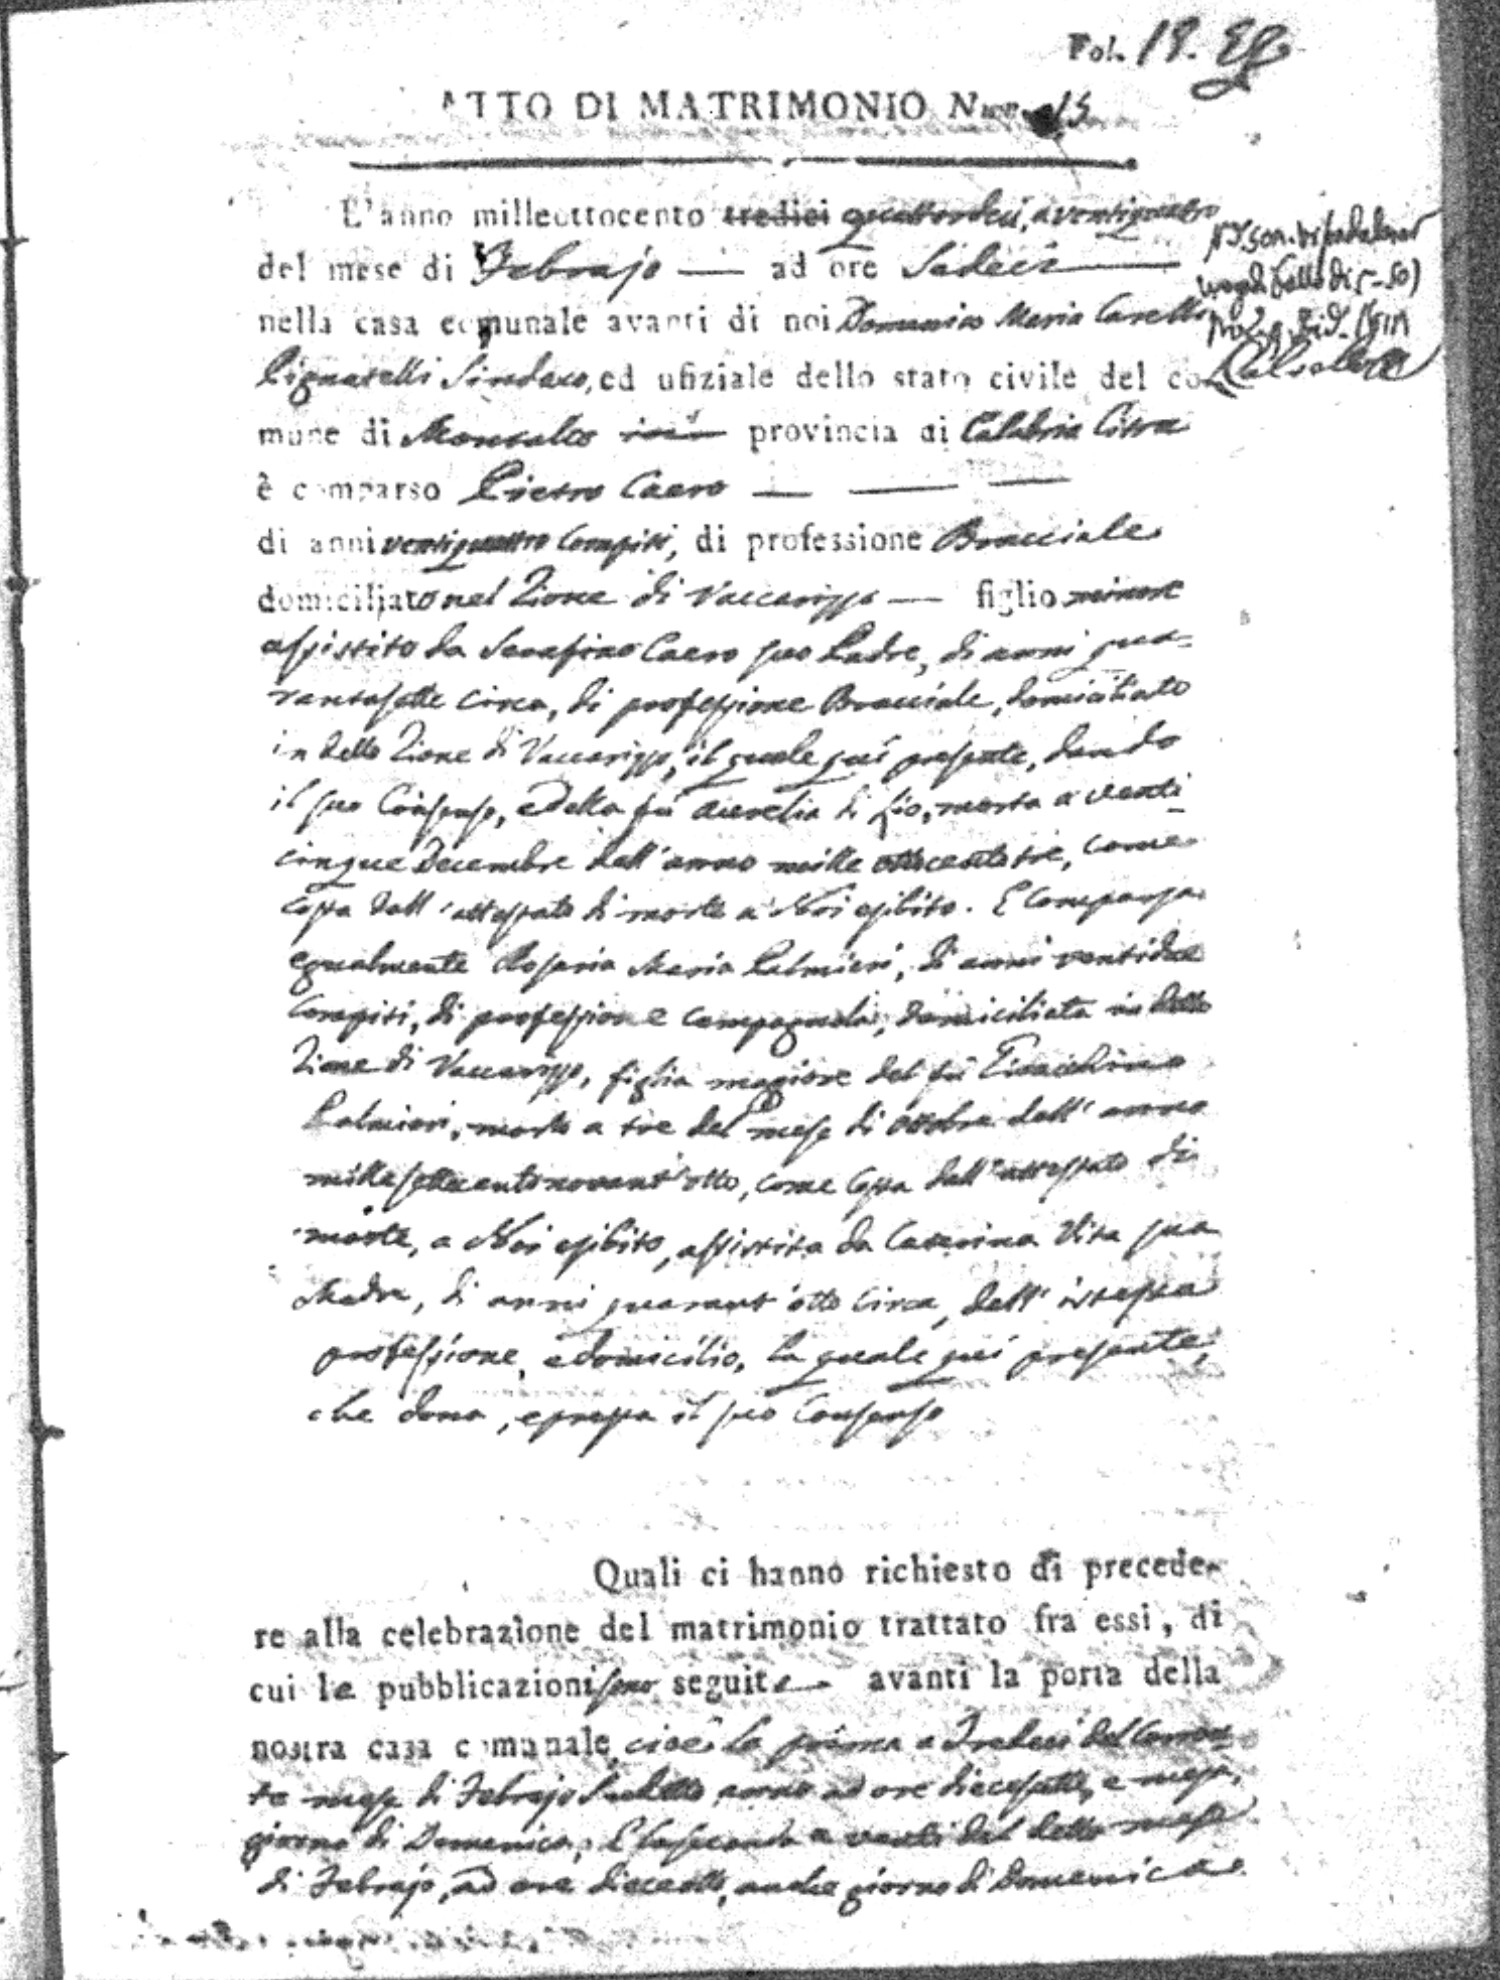 Fol. 19.
ATTO DI MATRIMONIO Num. 15
L'anno milleottocento tredici quattordeci, a ventiquattro
del mese di Febrajo — ad ore Sedeci —
nella casa comunale avanti di noi Domenico Maria Caselli
Pignatelli Sindaco, ed ufiziale dello stato civile del co-
mune di Montalto provincia di Calabria Citra
è comparso Pietro Caero — — —
di anni ventiquattro Compiti, di professione Bracciale
domiciliato nel Rione di Vaccarizzo — figlio minore
assistito da Serafino Caero suo Padre, di anni qua=
rantasette circa, di professione Bracciale, domiciliato
in detto Rione di Vaccarizzo, il quale quì presente, dando
il suo Consenso, e della fù Aurelia di Lio, morta a venti
cinque Decembre dell'anno mille ottocento tre, come
costa dall'attestato di morte a Noi esibito. E Comparsa
egualmente Rosaria Maria Palmieri, di anni ventidue
Compiti, di professione Campagnola, domiciliata in detto
Rione di Vaccarizzo, figlia magiore del fù Gioacchino
Palmieri, morto a tre del mese di Ottobre dell'anno
mille settecentonovant'otto, come Costa dall'attestato di
morte, a Noi esibito, assistita da Caterina Vita sua
Madre, di anni quarant'otto Circa, dell'istessa
professione, e domicilio, la quale quì presente,
che dona, e presta il suo Consenso
Quali ci hanno richiesto di precede-
re alla celebrazione del matrimonio trattato fra essi, di
cui le pubblicazioni sono seguite — avanti la porta della
nostra casa comunale, cioè la prima a Tredeci del Corren=
te mese di Febrajo Sudetto anno ad ore diecesette, e mezza,
giorno di Domenica, E la seconda a venti del detto mese
di Febrajo, ad ore dieceotto, anche giorno di Domenica.